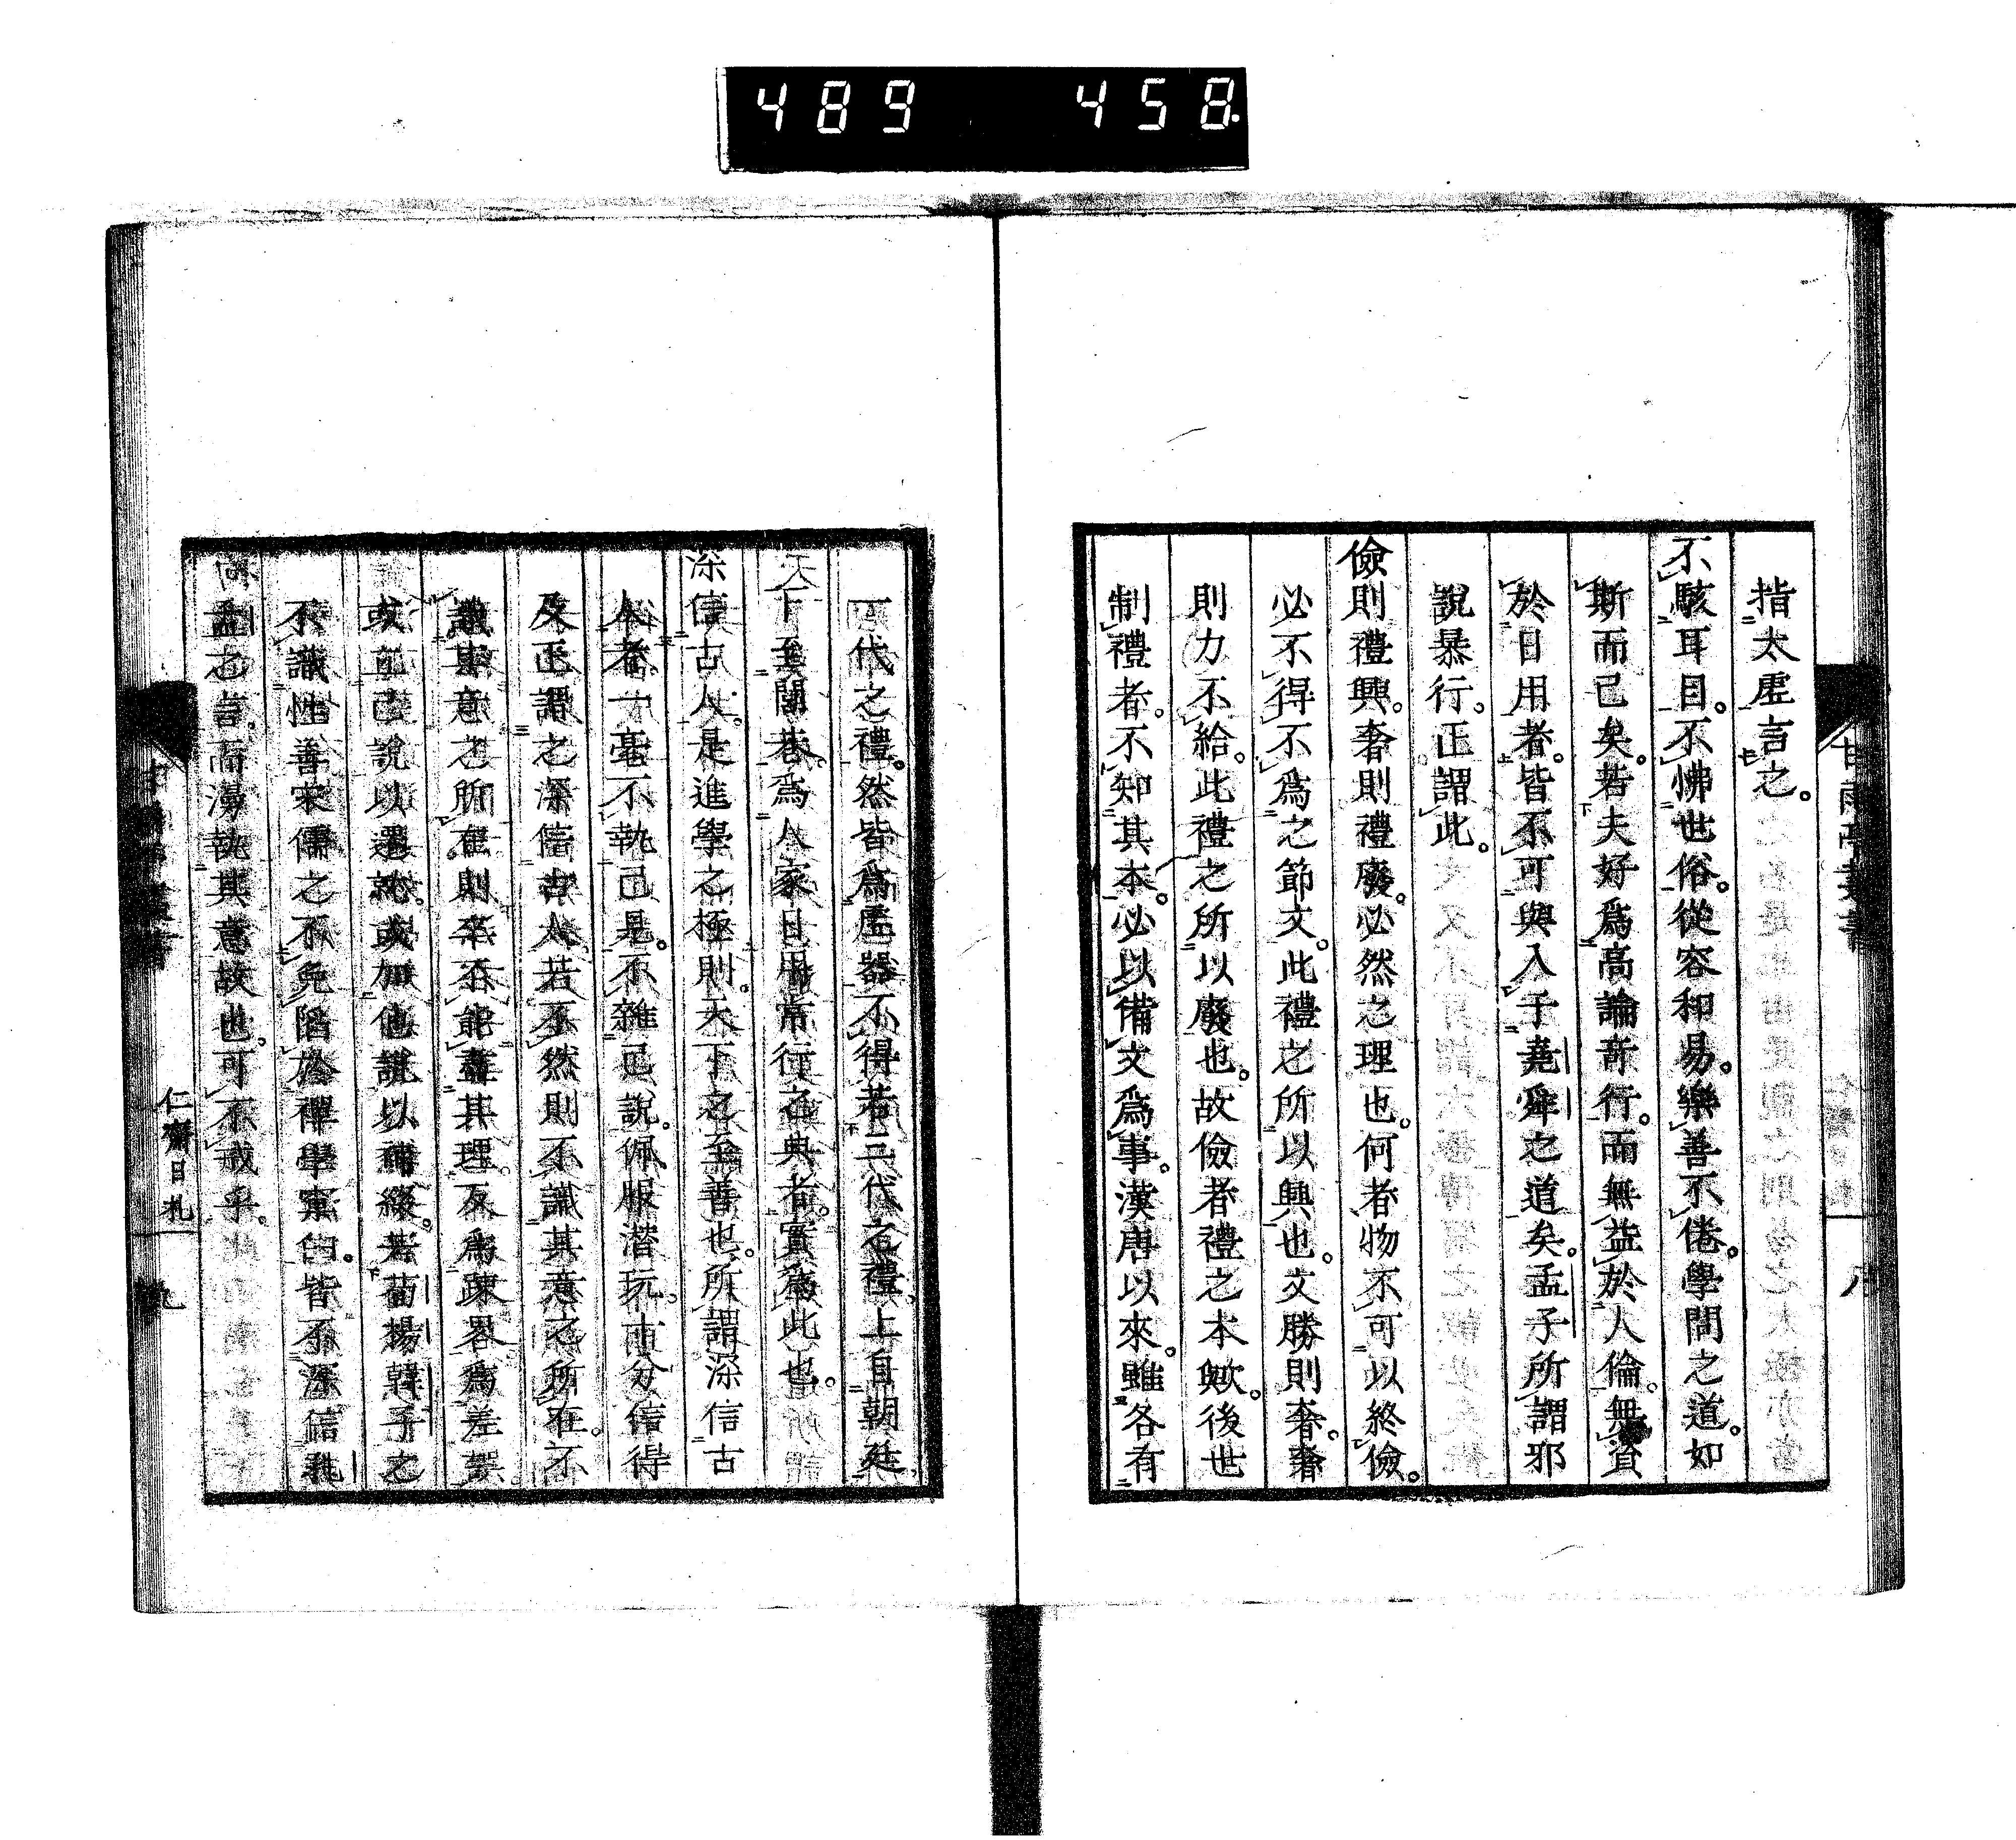 489 458.
甘雨亭叢書
指太虛言之。
不駭耳目。不怫世俗。從容和易。樂善不倦。學問之道。如
斯而已矣。若夫好爲高論奇行。而無益於人倫。無資
於日用者。皆不可與入于堯舜之道矣。孟子所謂邪
說暴行。正謂此。
儉則禮興。奢則禮廢。必然之理也。何者物不可以終儉。
必不得不爲之節文。此禮之所以興也。文勝則奢。奢
則力不給。此禮之所以廢也。故儉者禮之本歟。後世
制禮者。不知其本。必以備文爲事。漢唐以來。雖各有
一代之禮。然皆爲虛器不得若三代之禮。上自朝廷
下至閭巷。爲人家日用常行之典者。實爲此也。
深信古人。是進學之極則。天下之至善也。所謂深信古
人者。一毫不執己是。不雜己說。佩服潛玩。十分信得
及。正謂之深信古人。若不然則不識其意之所在。不
識其意之所在。則卒不能盡其理。反爲疎畧爲差誤。
或立己說以遷就。或加他說以補綴。若荀揚韓子之
不識性善宋儒之不免陷於禪學窠臼。皆不深信孔
孟之言。而漫執其意故也。可不戒乎。
仁齋日札
九